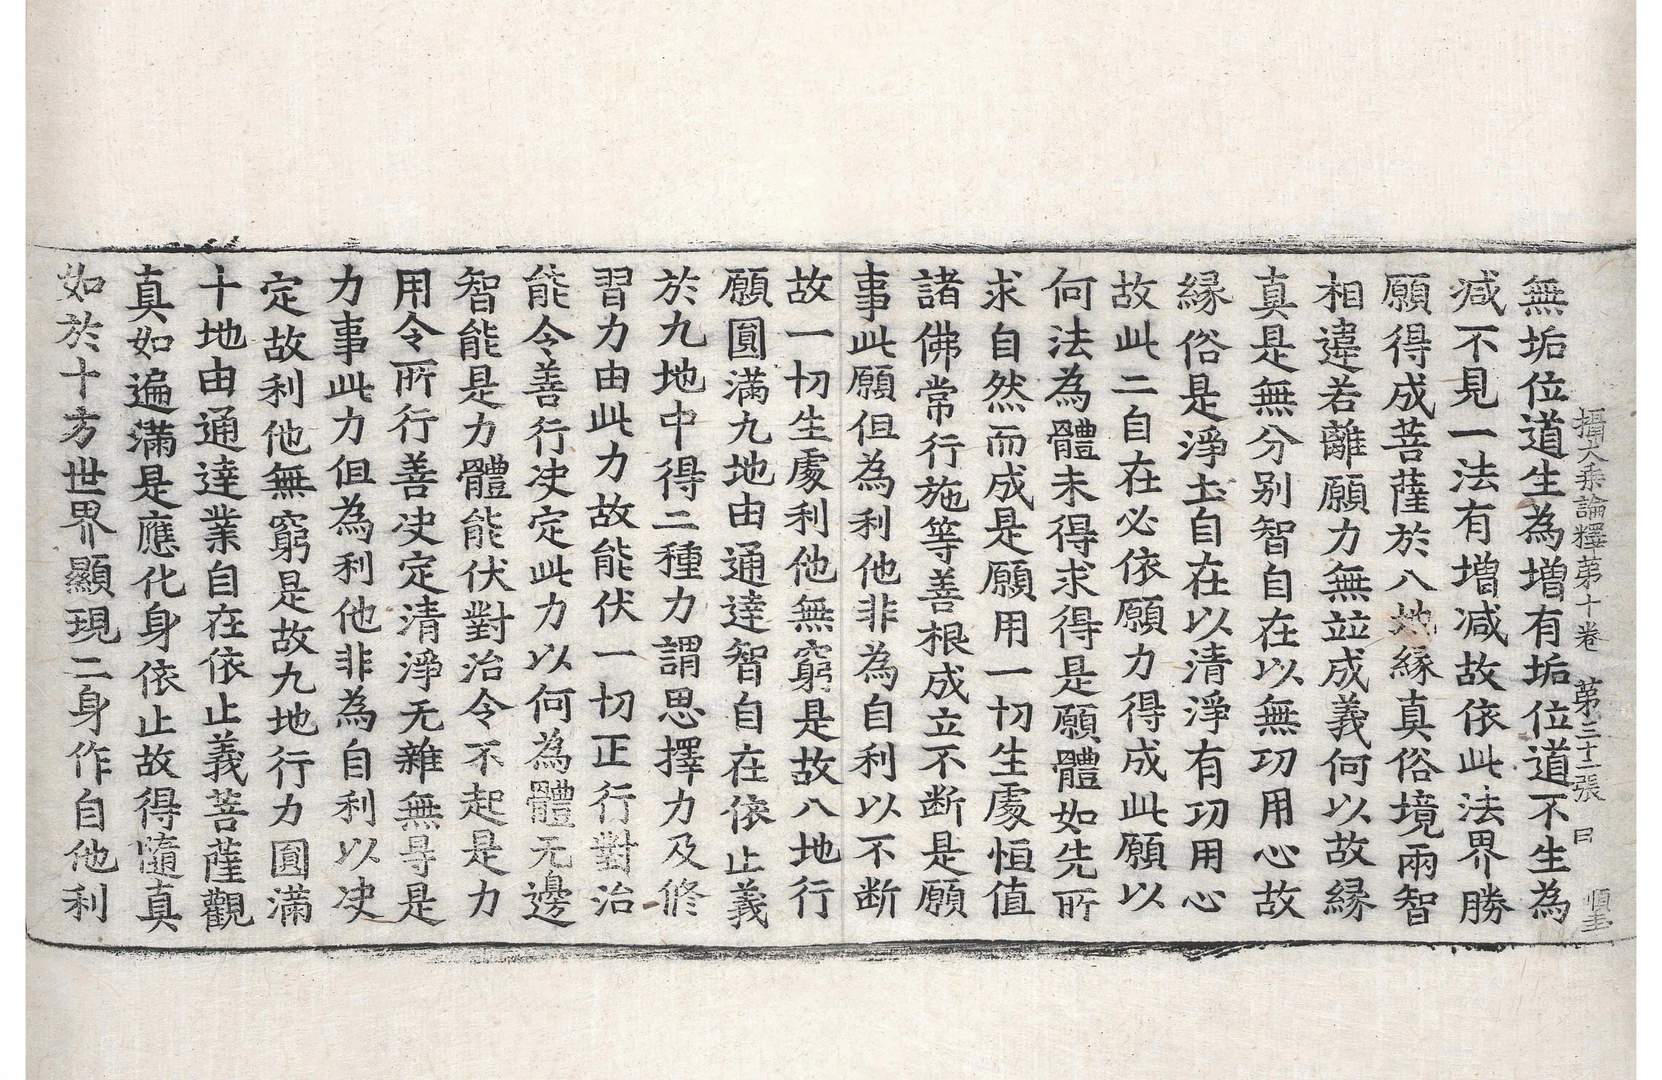 攝大乘論釋第十卷　第二十二張　曰　順圭
無垢位道生為增有垢位道不生為
减不見一法有增减故依此法界勝
願得成菩薩於八地緣真俗境兩智
相違若離願力無竝成義何以故緣
真是無分别智自在以無功用心故
緣俗是淨土自在以清淨有功用心
故此二自在必依願力得成此願以
何法為體未得求得是願體如先所
求自然而成是願用一切生處恒值
諸佛常行施等善根成立不断是願
事此願但為利他非為自利以不断
故一切生處利他無窮是故八地行
願圓滿九地由通達智自在依止義
於九地中得二種力謂思擇力及修
習力由此力故能伏一切正行對治
能令善行决定此力以何為體无邊
智能是力體能伏對治令不起是力
用令所行善决定清淨无雜無㝵是
力事此力但為利他非為自利以决
定故利他無窮是故九地行力圓滿
十地由通達業自在依止義菩薩觀
真如遍滿是應化身依止故得隨真
如於十方世界顯現二身作自他利